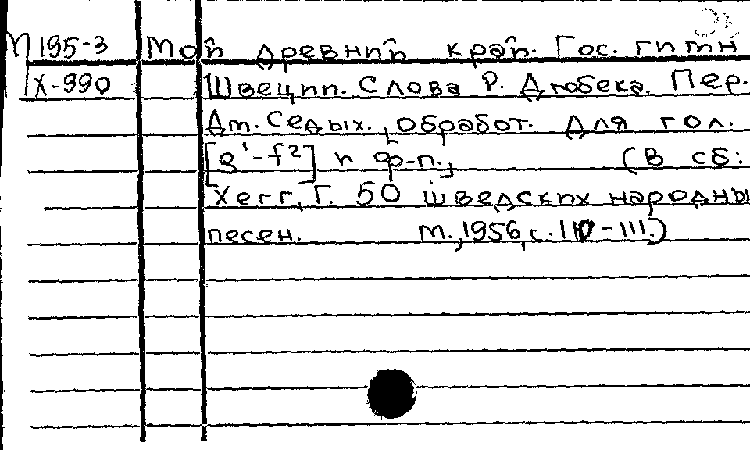 М 195-3 Мой древний край. Гос. гимн
X-990 Швеции. Слова Р. Дюбека. Пер.
Дм. Седых., обработ. для гол.
[g¹-f²] и ф-п., (В сб:
Хегг, Г. 50 шведских народны
песен. М., 1956, с. 110-111.)